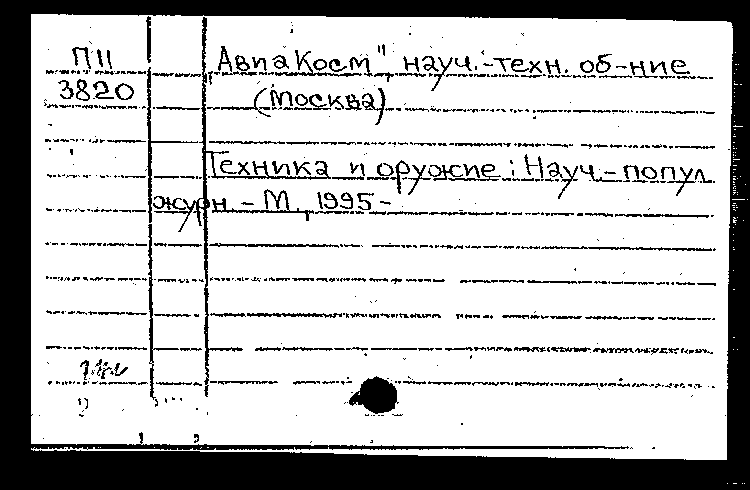 П11
3820
"АвиаКосм", науч.-техн. об-ние
(Москва)
Техника и оружие : Науч.-попул
журн. - М., 1995-